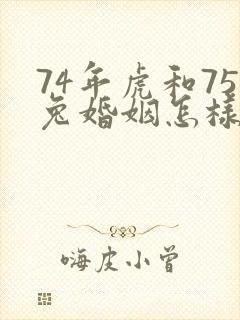 74年虎和75
兔婚姻怎样
嗨皮小曾